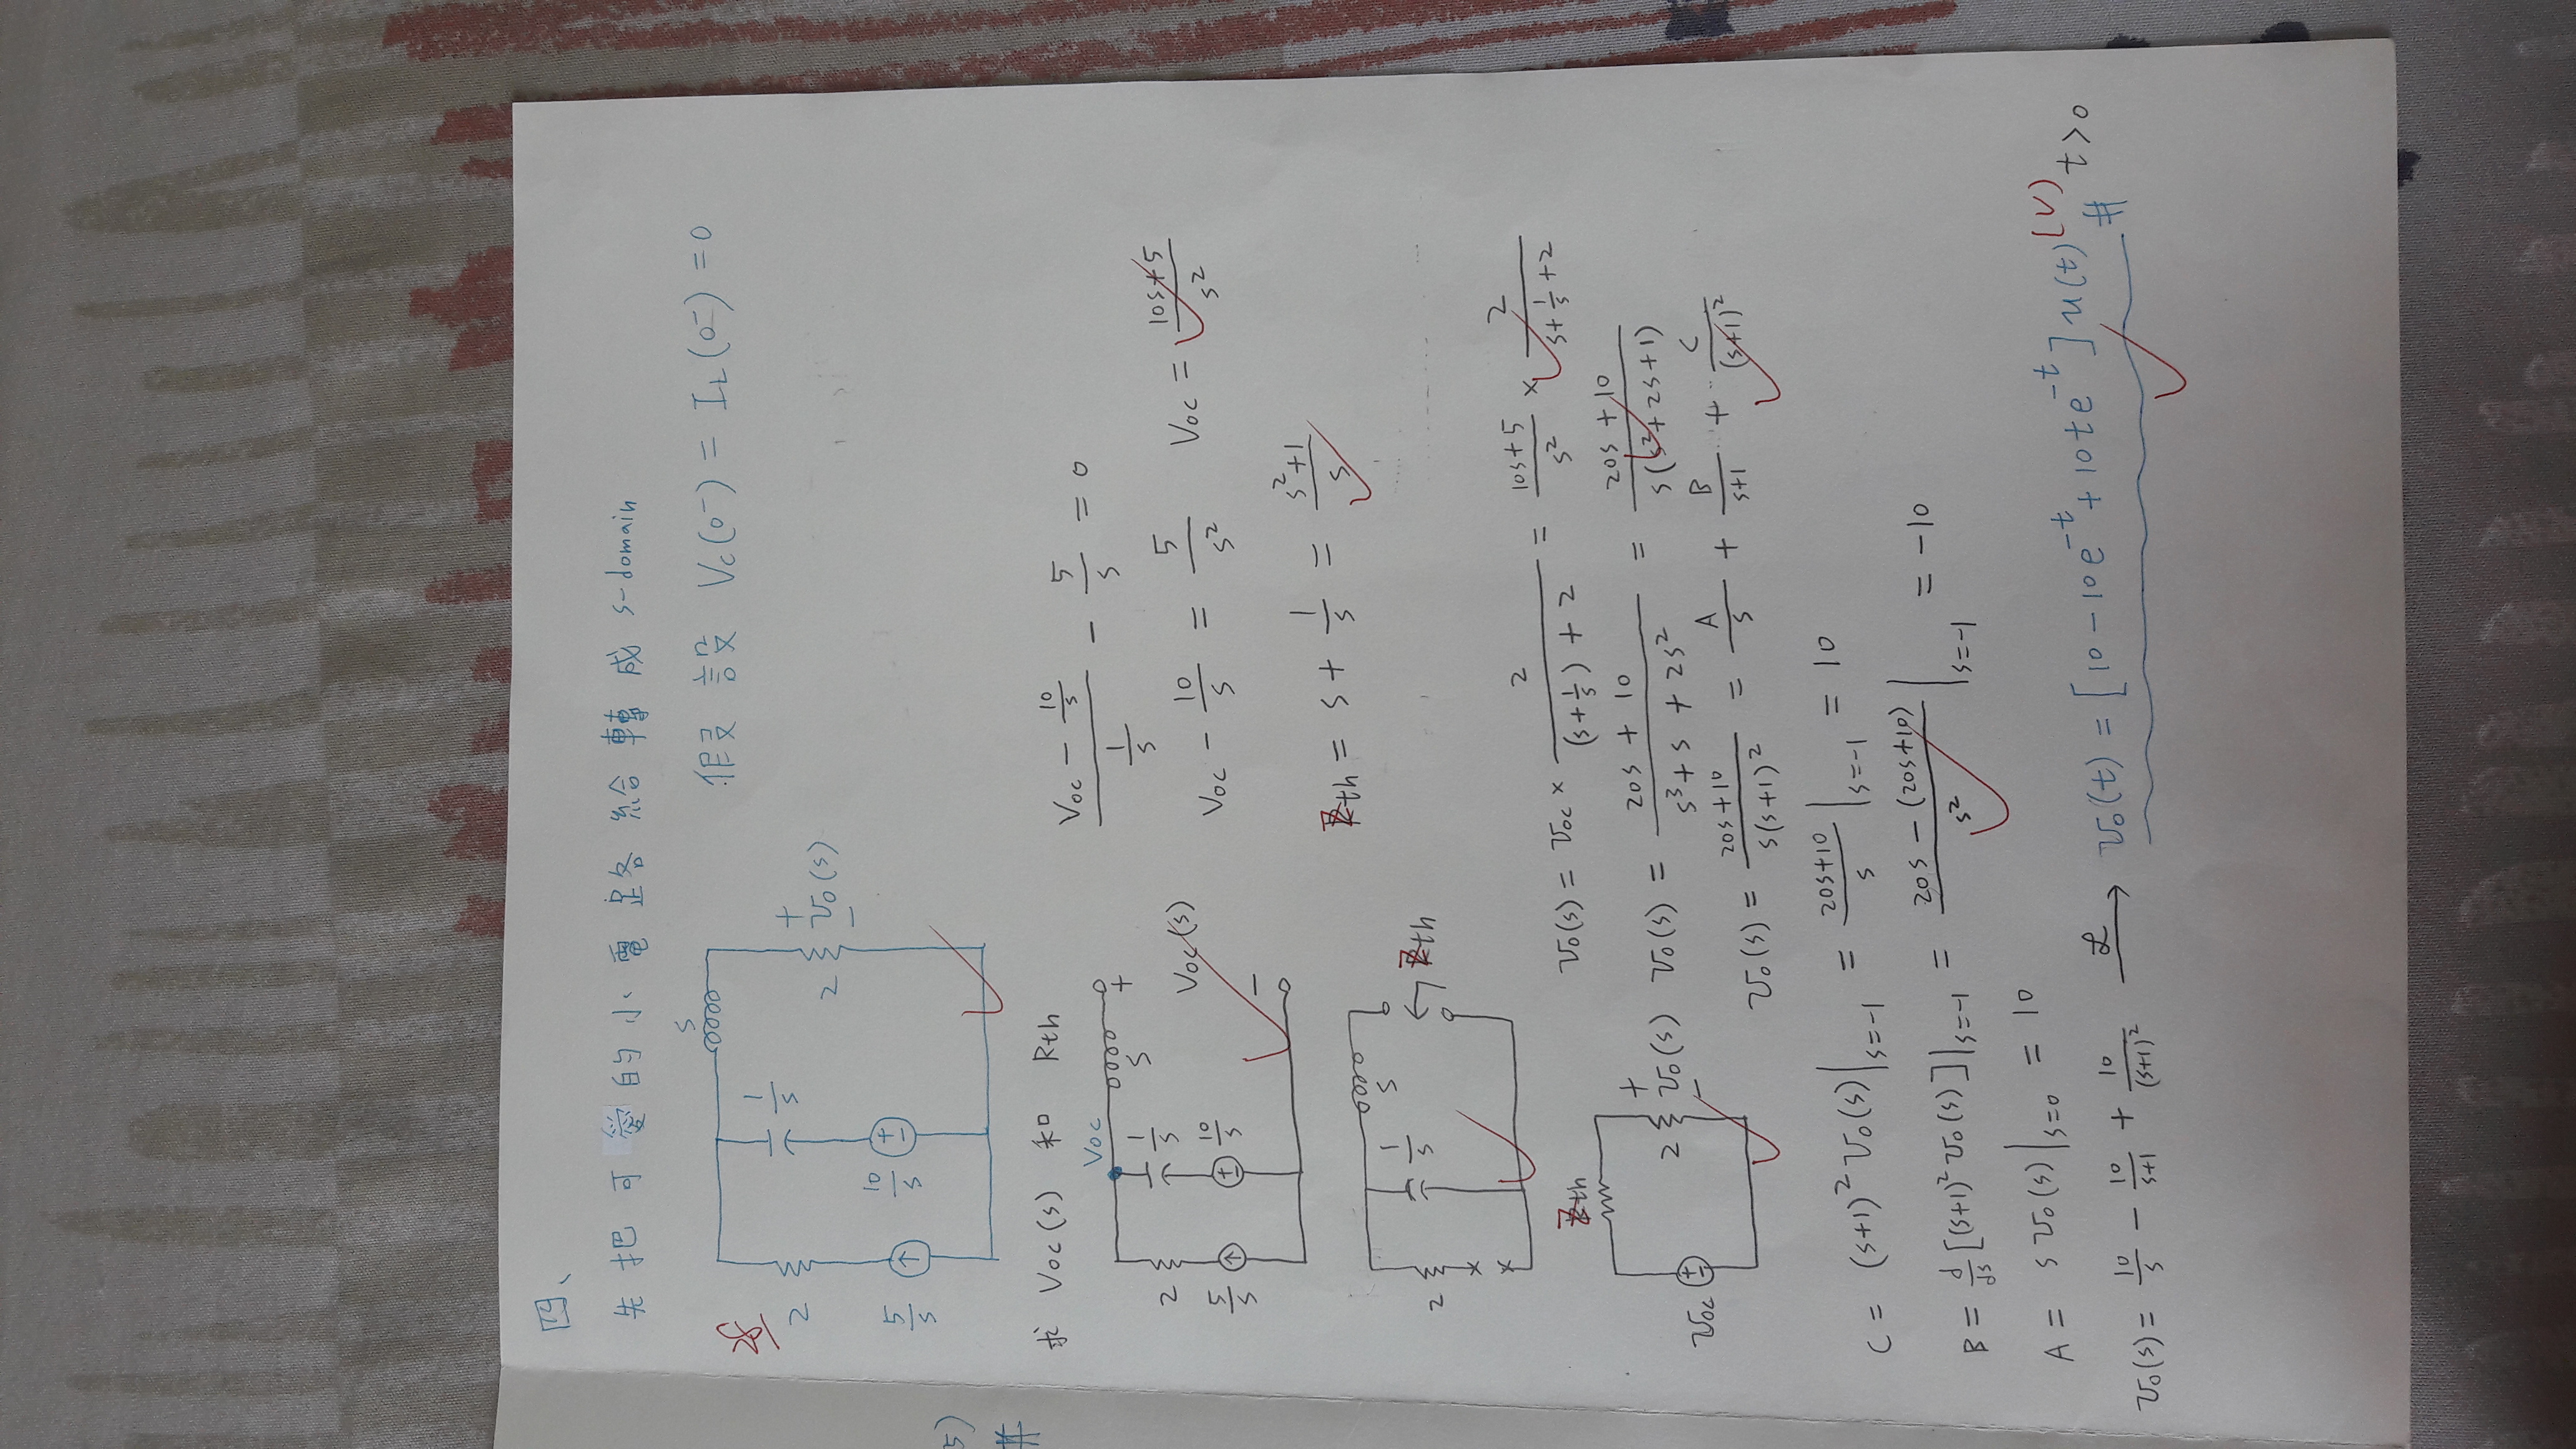 四、
先把可愛的小電路給轉成 s-domain
假設 Vc(0⁻) = I_L(0⁻) = 0
28
s
2
1/s
+
2 v₀(s)
−
5/s
10/s
5)
#
求 Voc(s) 和 Rth
Voc
s
+
2
1/s
Voc(s)
5/s
10/s
−
(Voc − 10/s)/(1/s) − 5/s = 0
Voc − 10/s = 5/s²
Voc = (10s+5)/s²
Zth = s + 1/s = (s²+1)/s
s
2
1/s
Zth
v₀(s) = voc × 2/((s+1/s)+2) = (10s+5)/s² × 2/(s+1/s+2)
Zth
+
2 v₀(s)
−
voc
v₀(s) = (20s+10)/(s³+s+2s²) = (20s+10)/(s(s²+2s+1))
v₀(s) = (20s+10)/(s(s+1)²) = A/s + B/(s+1) + C/(s+1)²
C = (s+1)² v₀(s)|s=-1 = (20s+10)/s |s=-1 = 10
B = d/ds [(s+1)² v₀(s)]|s=-1 = (20s − (20s+10))/s² |s=-1 = −10
A = s v₀(s)|s=0 = 10
v₀(s) = 10/s − 10/(s+1) + 10/(s+1)² ℒ→ v₀(t) = [10 − 10e^-t + 10te^-t] u(t) (V) # t>0